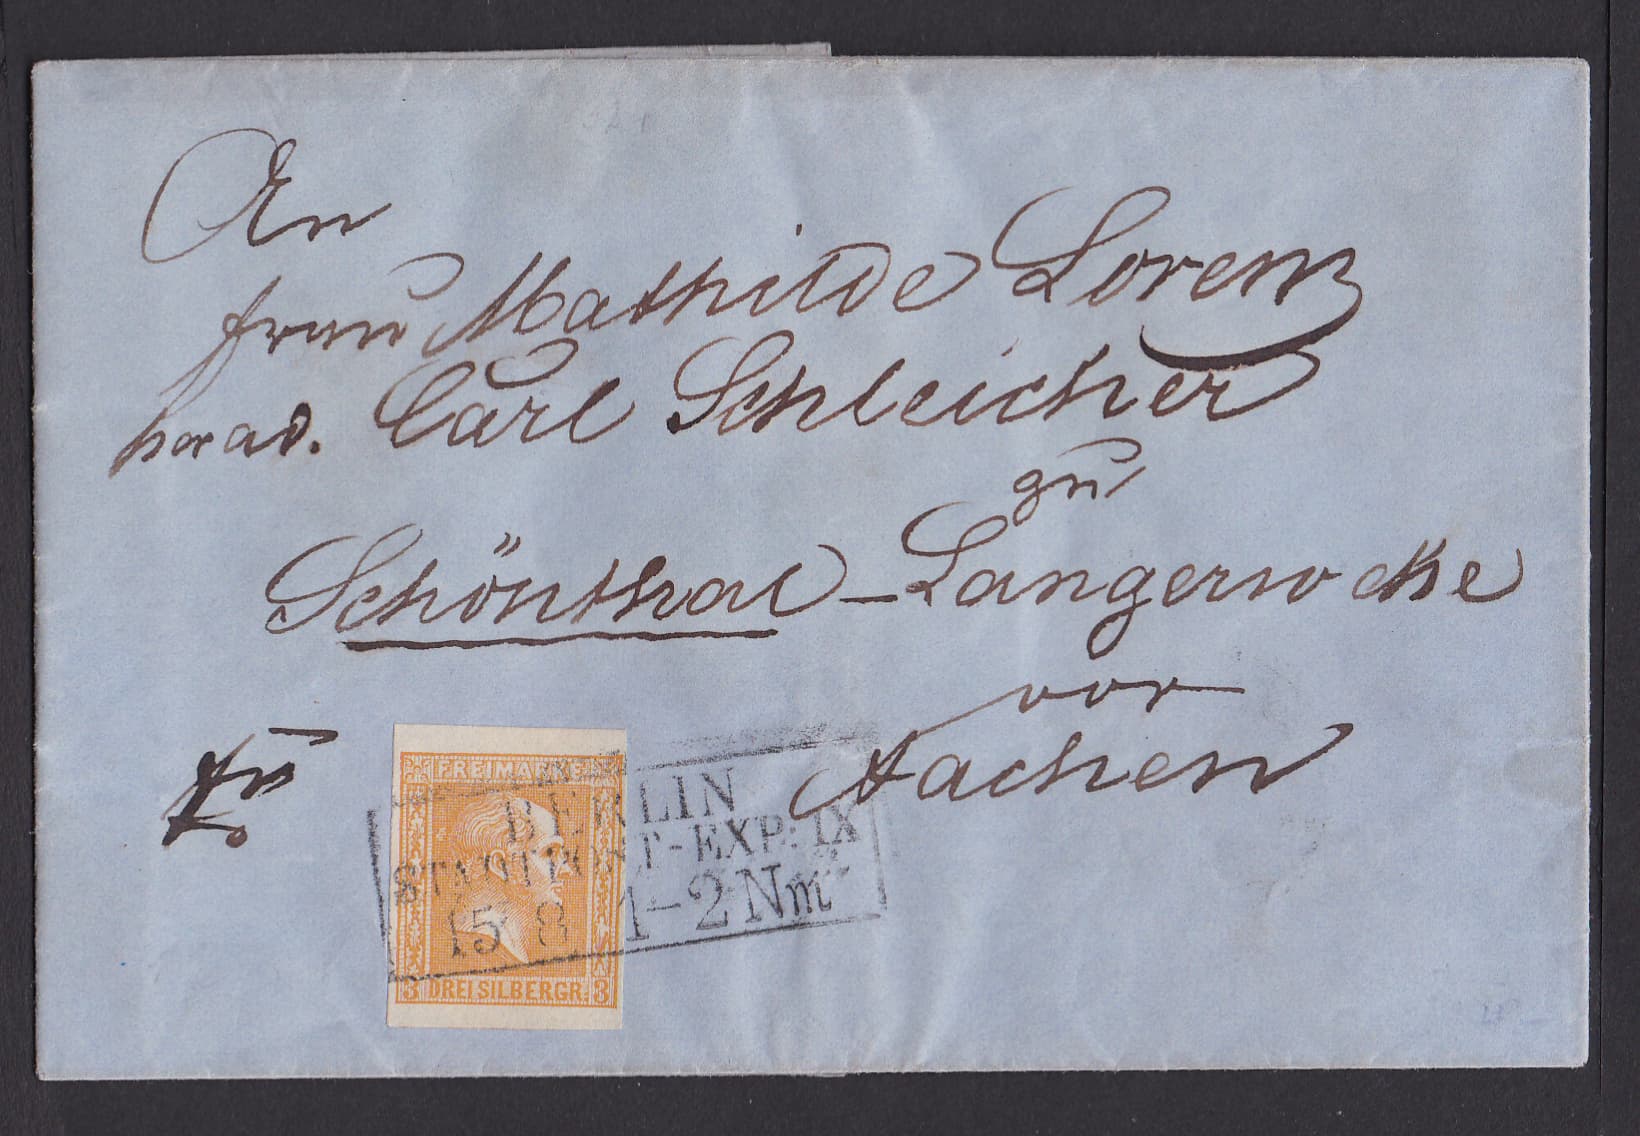 An
Frau Mathilde Lorenz
per ad. Carl Schleicher
zu
Schönthal–Langerwehe
vor
Aachen
fro
FREIMARKE
BERLIN
STADTPOST-EXP: IX
15 8 1–2 Nm
3 DREI SILBERGR. 3